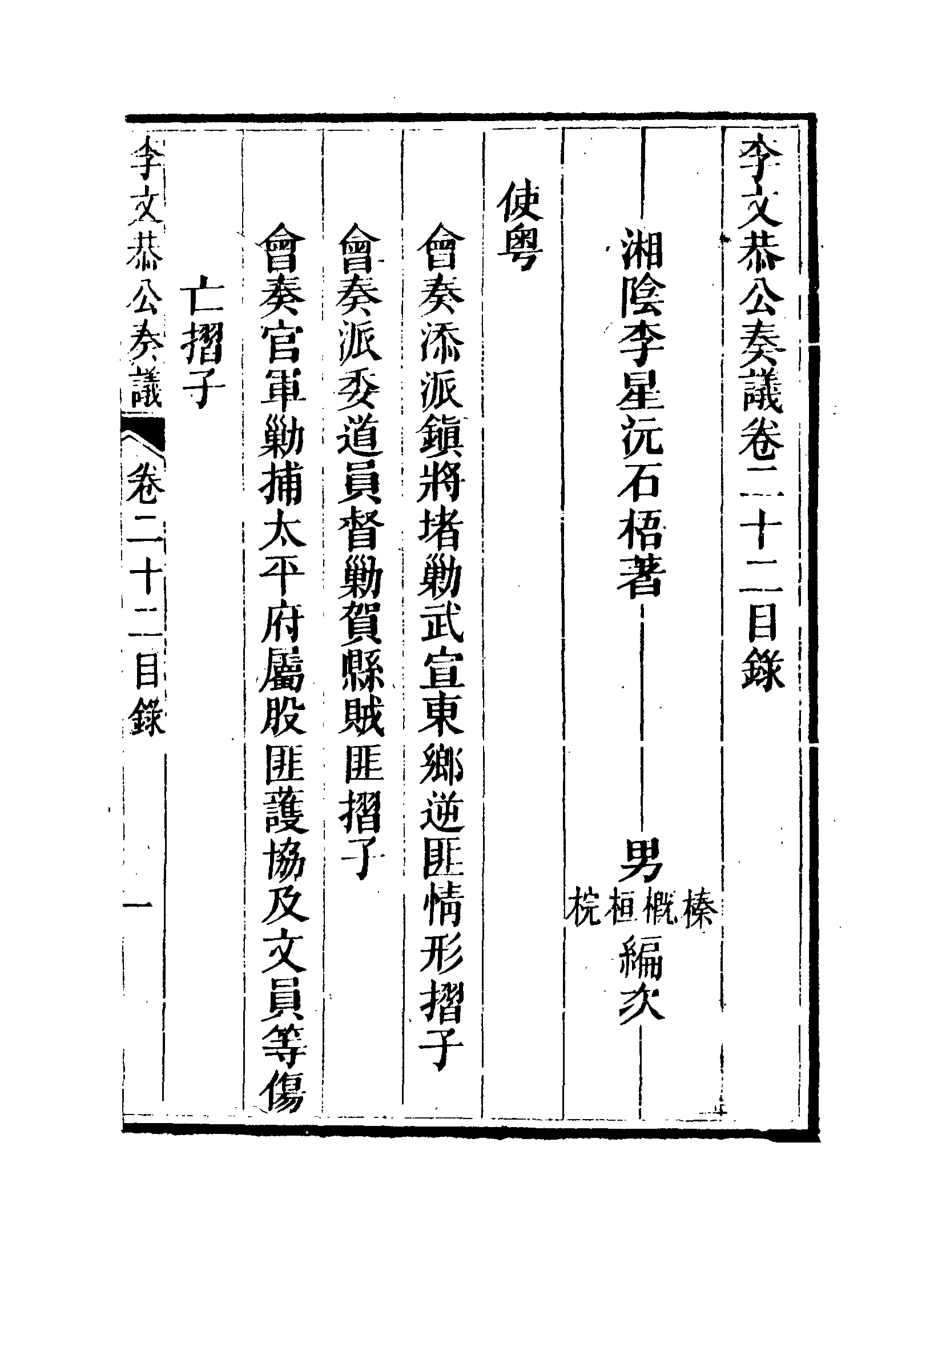 李文恭公奏議卷二十二目錄
湘陰李星沅石梧著 男榛概桓梡編次
使粵
會奏添派鎭將堵勦武宣東鄉逆匪情形摺子
會奏派委道員督勦賀縣賊匪摺子
會奏官軍勦捕太平府屬股匪護協及文員等傷
亡摺子
李文恭公奏議 卷二十二目錄 一